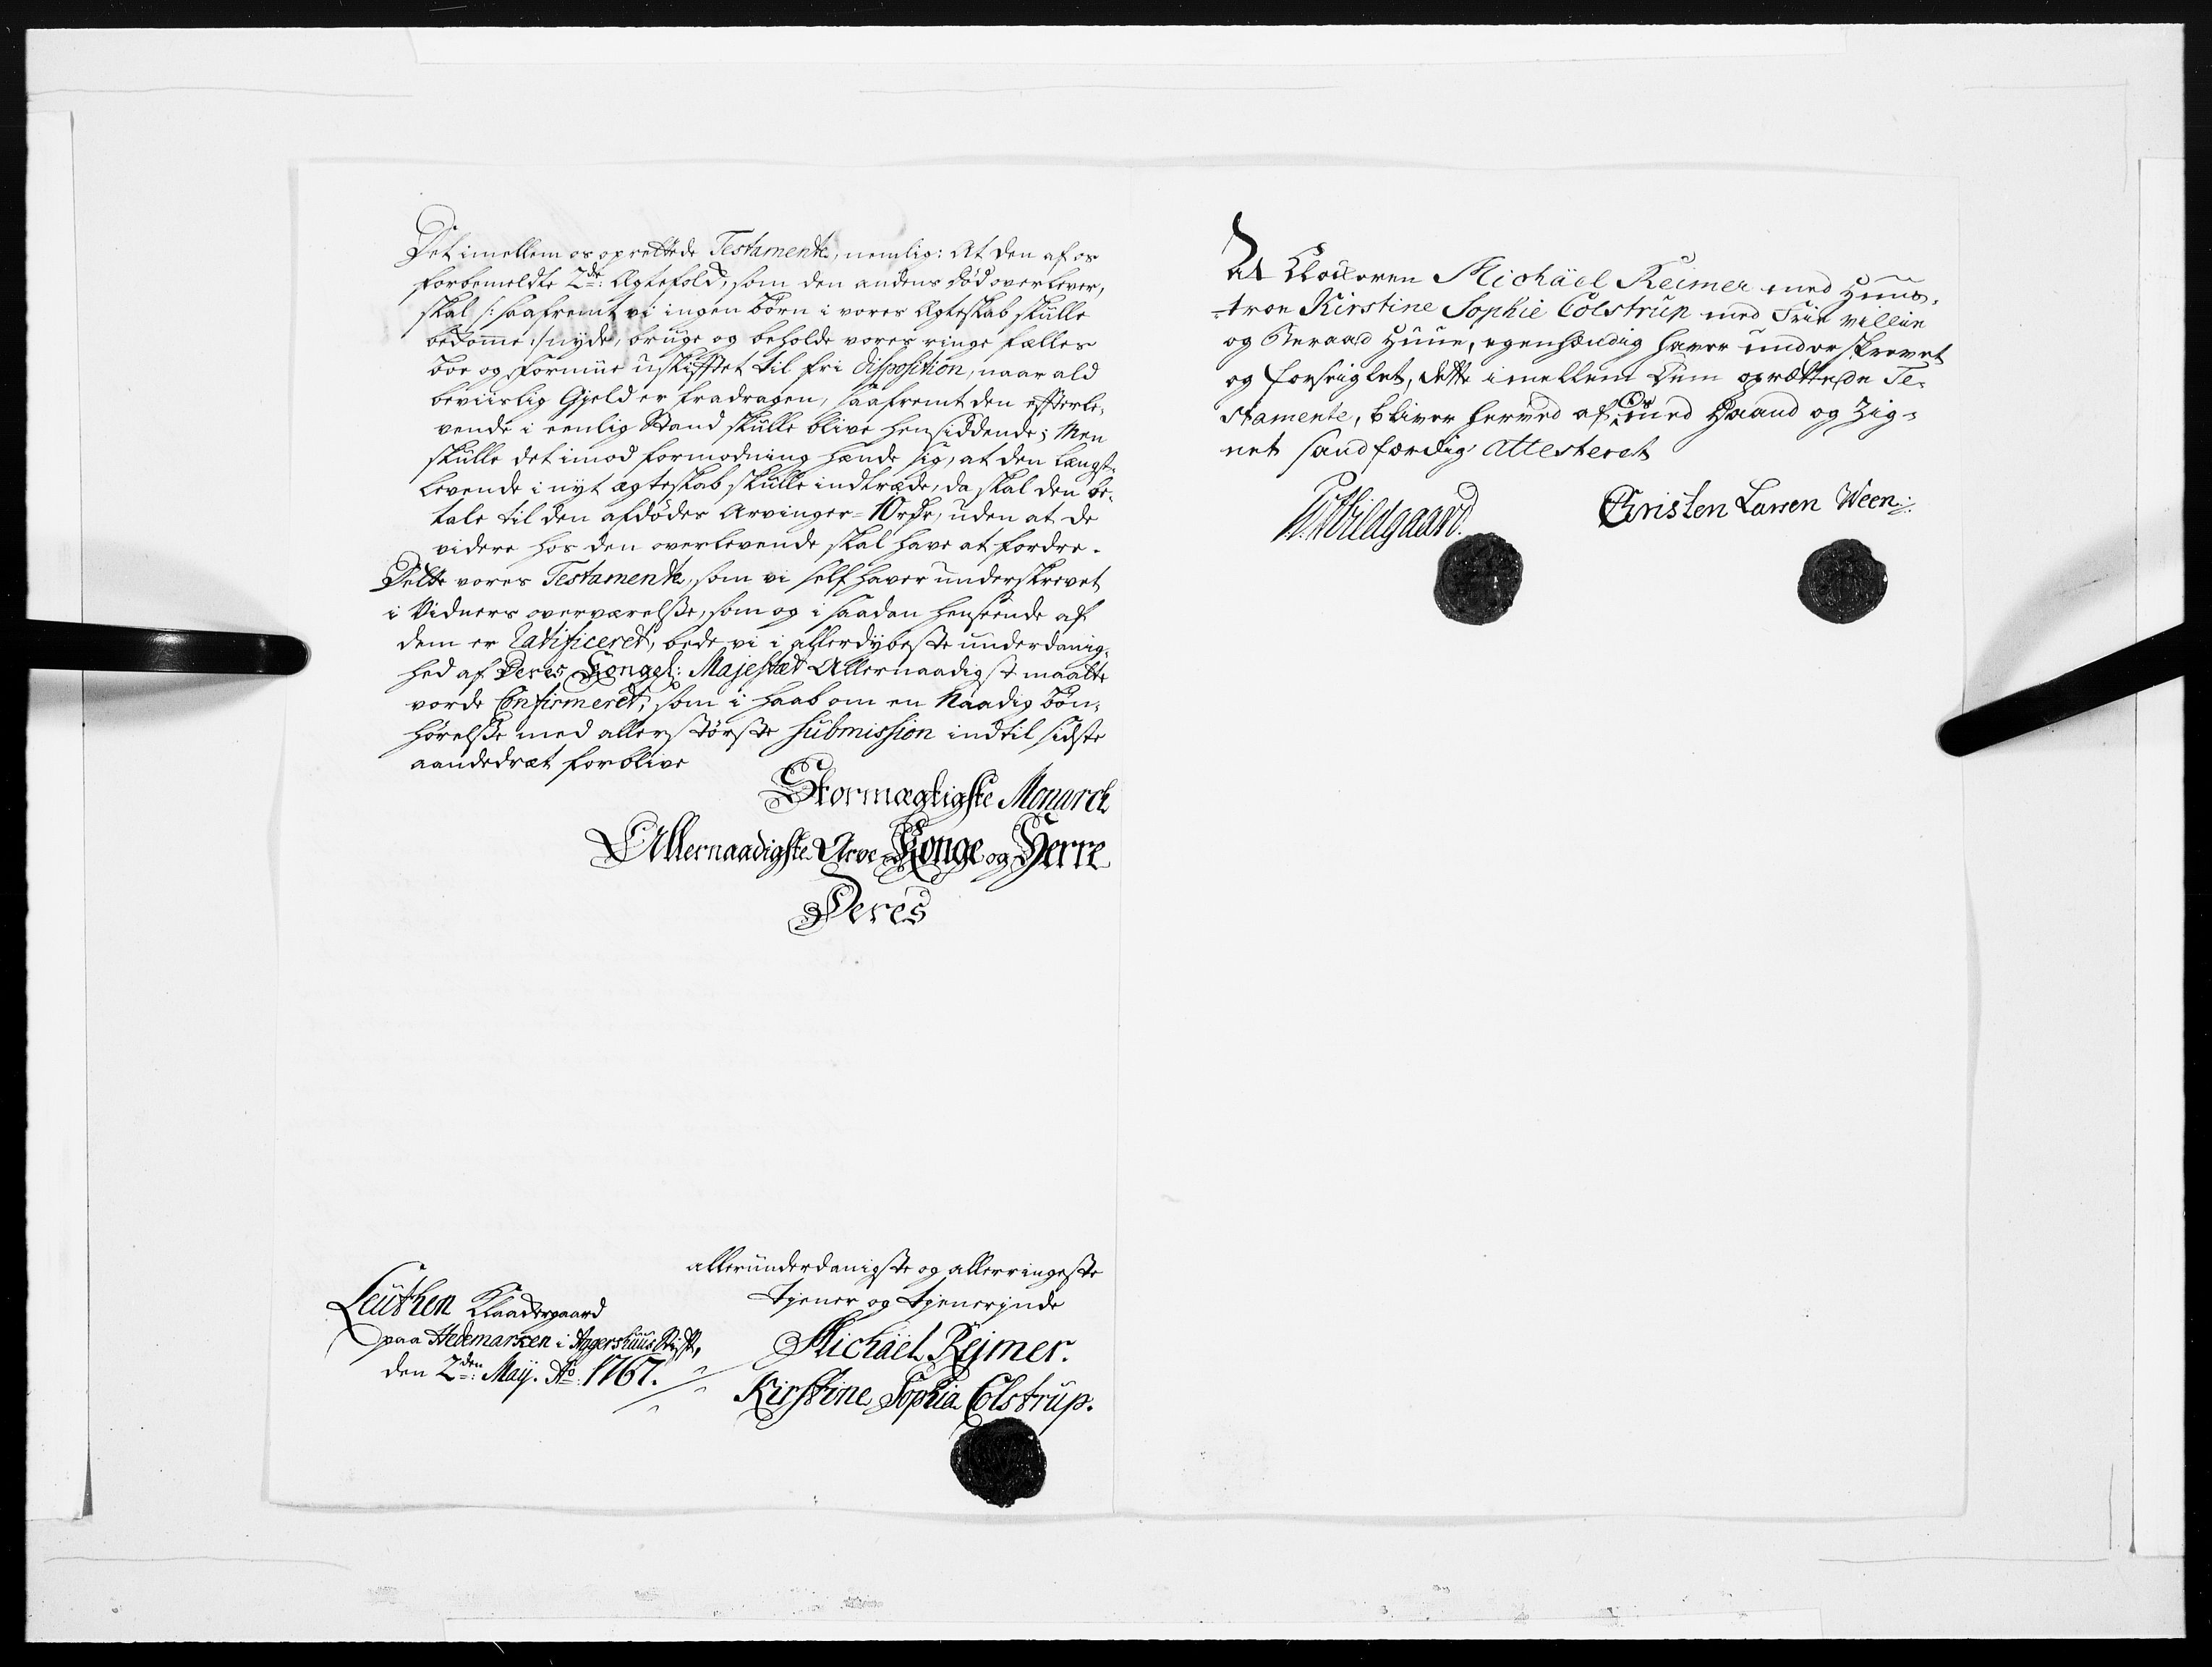 Det imellem os oprettede Testamente, nemlig: At den af os
forbemeldte 2de: Ægtefolk, som den andens død overlever,
skal /: saafremt vi ingen børn i vores Ægteskab skulle
bekomme :/ nyde, bruge og beholde vores ringe fælles
boe og formue uskifftet til fri disposition, naar ald
beviislig Gjeld er fradragen, saafremt den efterle-
vende i eenlig Stand skulle blive hensiddende; Men
skulle det imod formodning hænde sig, at den længst-
levende i nyt ægteskab skulle indtræde, da skal den be-
tale til den afdødes Arvinger = 10 rdr, uden at de
videre hos den overlevende skal have at fordre.
Dette vores Testamente, som vi self haver underskrevet
i Vidners overværelse, som og i saadan henseende af
dem er Ratificeret, bede vi i allerdybeste underdanig-
hed af Deres Kongel: Majestæt Allernaadigst maatte
vorde Confirmeret, som i haab om en Naadig bøn-
hørelse med allerstørste submission indtil sidste
aandedræt forblive
Stormægtigste Monarch
Allernaadigste Arve-Konge og Herre
Deres
allerunderdanigste og allerringeste
Tjener og Tjenerinde
Leuthen Klaadergaard
paa Hedemarken i Aggershuus Stift,
den 2den: Maij. Ao: 1767.
Michael Rejmer.
Kirstine Sophia Colstrup.
At Klokeren Michäel Reimer med Huus-
troe Kirstine Sophie Colstrup med Frie villie
og Beraad Huue, egenhændig haver underskrevet
og forseiglet, dette imellem Dem oprettede Te-
stamente, bliver herved af Os med Haand og Zig-
net sandfærdig Attesteret
Abildgaard.
Christen Larsen Ween